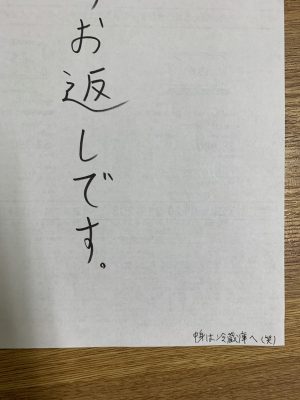 お返しです。
鴨は冷蔵庫へ(笑)